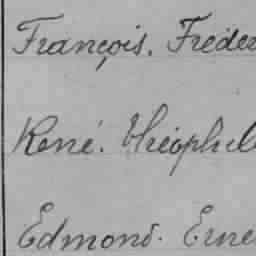 François. Fréder
René. Théophil
Edmond. Erne